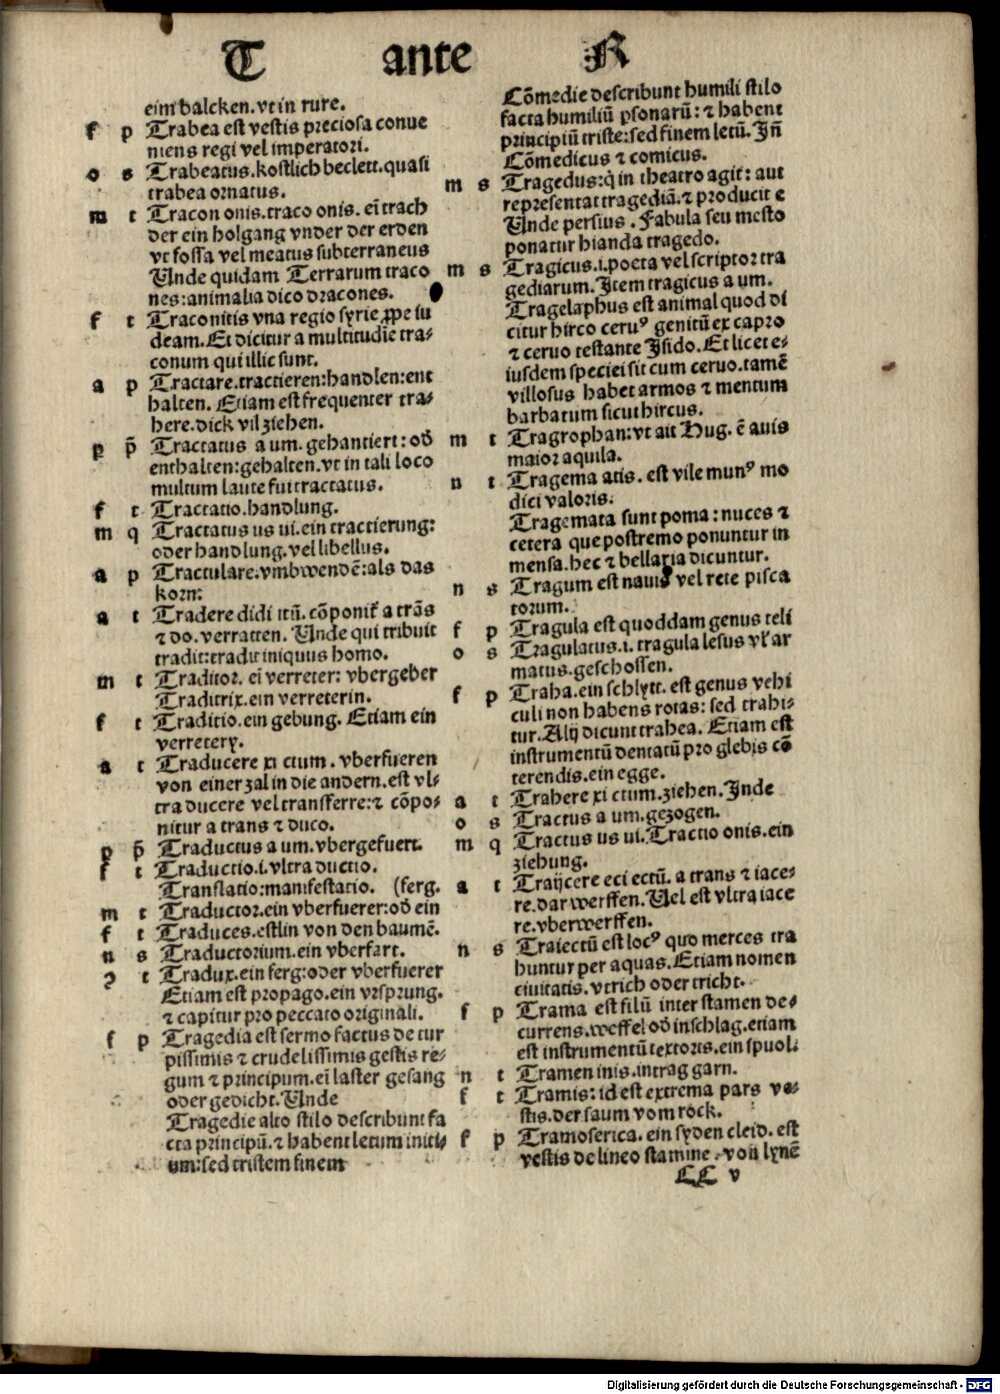 T ante R
eim balcken. vt in rure.
f p Trabea est vestis preciosa conue
niens regi vel imperatori.
o s Trabeatus. kostlich beclett. quasi
trabea ornatus.
m t Tracon onis. traco onis. eī trach
der ein holgang vnder der erden
vt fossa vel meatus subterraneus
Unde quidam Terrarum traco
nes: animalia dico dracones.
f t Traconitis vna regio syrie ꝓpe iu
deam. Et dicitur a multitudīe tra⸗
conum qui illic sunt.
a p Tractare. tractieren: handlen: ent
halten. Etiam est frequenter tra⸗
here. dick vil ziehen.
p p̄ Tractatus a um. gehantiert: od̄
enthalten: gehalten. vt in tali loco
multum laute fui tractatus.
f t Tractatio. handlung.
m q Tractatus us ui. ein tractierung:
oder handlung. vel libellus.
a p Tractulare. vmbwendē: als das
korn:
a t Tradere didi itū. cōponit̄ a trās
⁊ do. verratten. Unde qui tribuit
tradit: tradit iniquus homo.
m t Traditor. ei verreter: vbergeber
Traditrix. ein verreterin.
f t Traditio. ein gebung. Etiam ein
verreterÿ.
a t Traducere xi ctum. vberfueren
von einer zal in die andern. est vl⸗
tra ducere vel transferre: ⁊ cōpo⸗
nitur a trans ⁊ duco.
p p̄ Traductus a um. vbergefuert.
f t Traductio. i. vltra ductio.
Translatio: manifestatio. (ferg.
m t Traductor. ein vberfuerer: od̄ ein
f t Traduces. estlin von den baumē.
n s Traductorium. ein vberfart.
ꝯ t Tradux. ein ferg: oder vberfuerer
Etiam est propago. ein vrsprung.
⁊ capitur pro peccato originali.
f p Tragedia est sermo factus de tur
pissimis ⁊ crudelissimis gestis re⸗
gum ⁊ principum. eī laster gesang
oder gedicht. Unde
Tragedie alto stilo describunt fa
cta principū. ⁊ habent letum initi⸗
um: sed tristem finem
Cōmedie describunt humili stilo
facta humiliū ꝑsonarū: ⁊ habent
principiū triste: sed finem letū. Jn̄
Cōmedicus ⁊ comicus.
m s Tragedus: q̇ in theatro agit: aut
representat tragediā. ⁊ producit e
Unde persius. Fabula seu mesto
ponatur hianda tragedo.
m s Tragicus. i. poeta vel scriptor tra
gediarum. Jtem tragicus a um.
Tragelaphus est animal quod di
citur hircoceruꝰ genitū ex capro
⁊ ceruo testante Jsido. Et licet e⸗
iusdem speciei sit cum ceruo. tamē
villosus habet armos ⁊ mentum
barbatum sicut hircus.
m t Tragrophan: vt ait Hug. ē auis
maior aquila.
n t Tragema atis. est vile munꝰ mo
dici valoris.
Tragemata sunt poma: nuces ⁊
cetera que postremo ponuntur in
mensa. hec ⁊ bellaria dicuntur.
n s Tragum est nauis vel rete pisca
torum.
f p Tragula est quoddam genus teli
o s Tragulatus. i. tragula lesus vł ar
matus. geschossen.
f p Traha. ein schlÿtt. est genus vehi
culi non habens rotas: sed trahi⸗
tur. Alij dicunt trahea. Etiam est
instrumentū dentatū pro glebis cō
terendis. ein egge.
a t Trahere xi ctum. ziehen. Jnde
o s Tractus a um. gezogen.
m q Tractus us ui. Tractio onis. ein
ziehung.
a t Traijcere eci ectū. a trans ⁊ iace⸗
re. dar werffen. Uel est vltra iace
re. vberwerffen.
n s Traiectū est locꝰ quo merces tra
huntur per aquas. Etiam nomen
ciuitatis. vtrich oder tricht.
f p Trama est filū inter stamen de⸗
currens. weffel od̄ inschlag. etiam
est instrumentū textoris. ein spuol.
n t Tramen inis. intrag garn.
f t Tramis: id est extrema pars ve⸗
stis. der saum vom rock.
f p Tramoserica. ein sÿden cleid. est
vestis de lineo stamine. von lÿnē
CC v
Digitalisierung gefördert durch die Deutsche Forschungsgemeinschaft - DFG